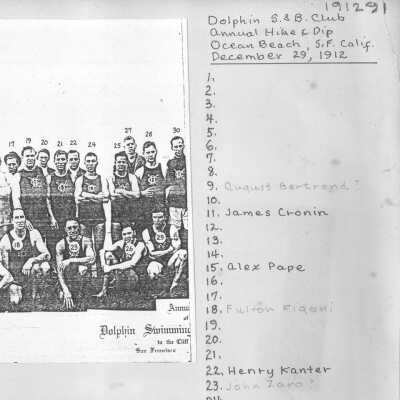 191291
Dolphin S.&B. Club
Annual Hike & Dip
Ocean Beach, S.F. Calif.
December 29, 1912
1.
2.
3.
4.
5.
6.
7.
8.
9. August Bertrand?
10.
11. James Cronin
12.
13.
14.
15. Alex Pape
16.
17.
18. Fulton Figoni
19.
20.
21.
22. Henry Kanter
23. John Zaro?
24.
17 19 20 21 22 24 25 27 28 30
18 23 26 29
Annu
of
Dolphin Swimming
to the Cliff
San Francisco